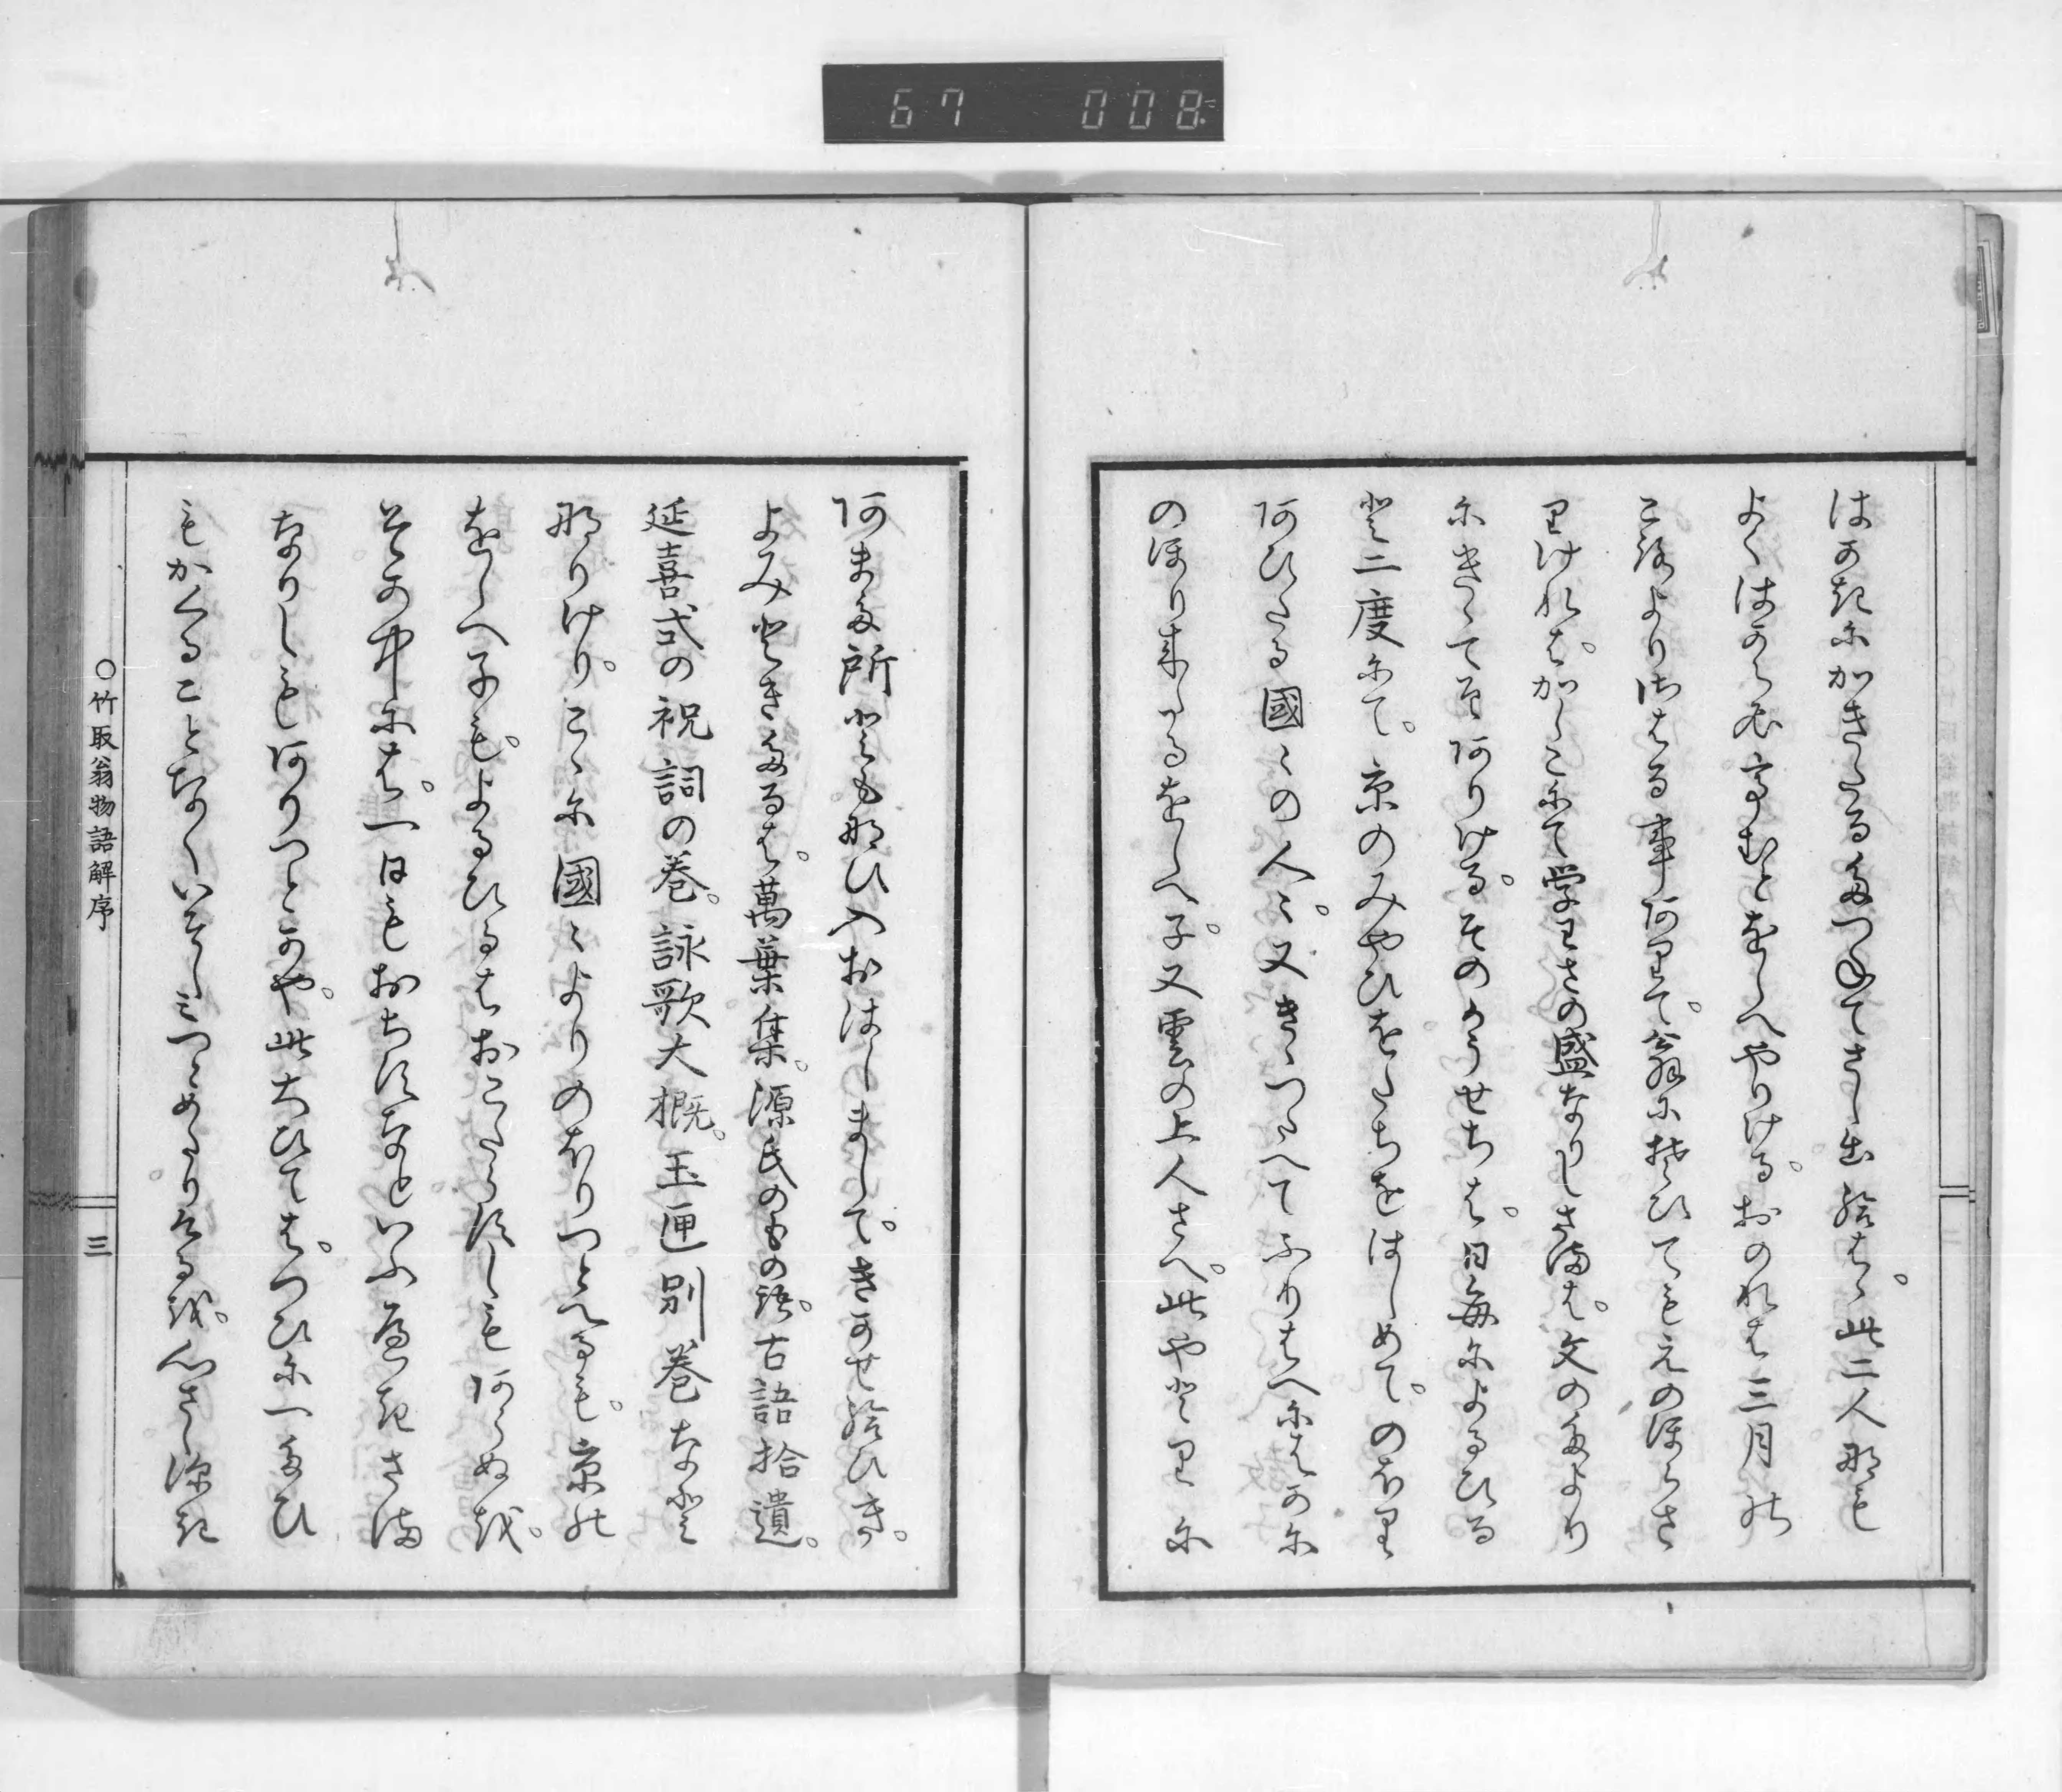 67 008
はのきにかきたるふつみてさし出給はゝ。此二人那も
よくはのらひ高むとをしへやりける。おのれは三月能
ころよりさはる事阿里て。翁にそひてもえのほらさ
里けれは。かしこにて学里さの盛なりしさまは。文のたより
にきゝてそ阿りける。そのかうせちは。日毎によるひる
登二度にて。京のみやひをたちをはしめて。のほ里
阿ひたる國〻の人〻。又きゝつたへてふりはへにはかに
のほり来たるをしへ子。又雲の上人さへ。此や登里に
阿また所ともなひ入おはしまして。きかせ給ひき。
よみときたるは。萬葉集。源氏のもの語。古語拾遺。
延喜式の祝詞の巻。詠歌大概。玉匣別巻なと
那りけり。こゝに國〻よりのほりつとへるも。京能
をしへ子も。よるひるはおこたらすしも阿らぬを。
そか中には。一日もおちすなといふへきさま
なりしも阿りつとかや。此たひては。つひに一たひ
もかくることなくいそしみつとめたりけるを。心さし深き
〇竹取翁物語解序
三